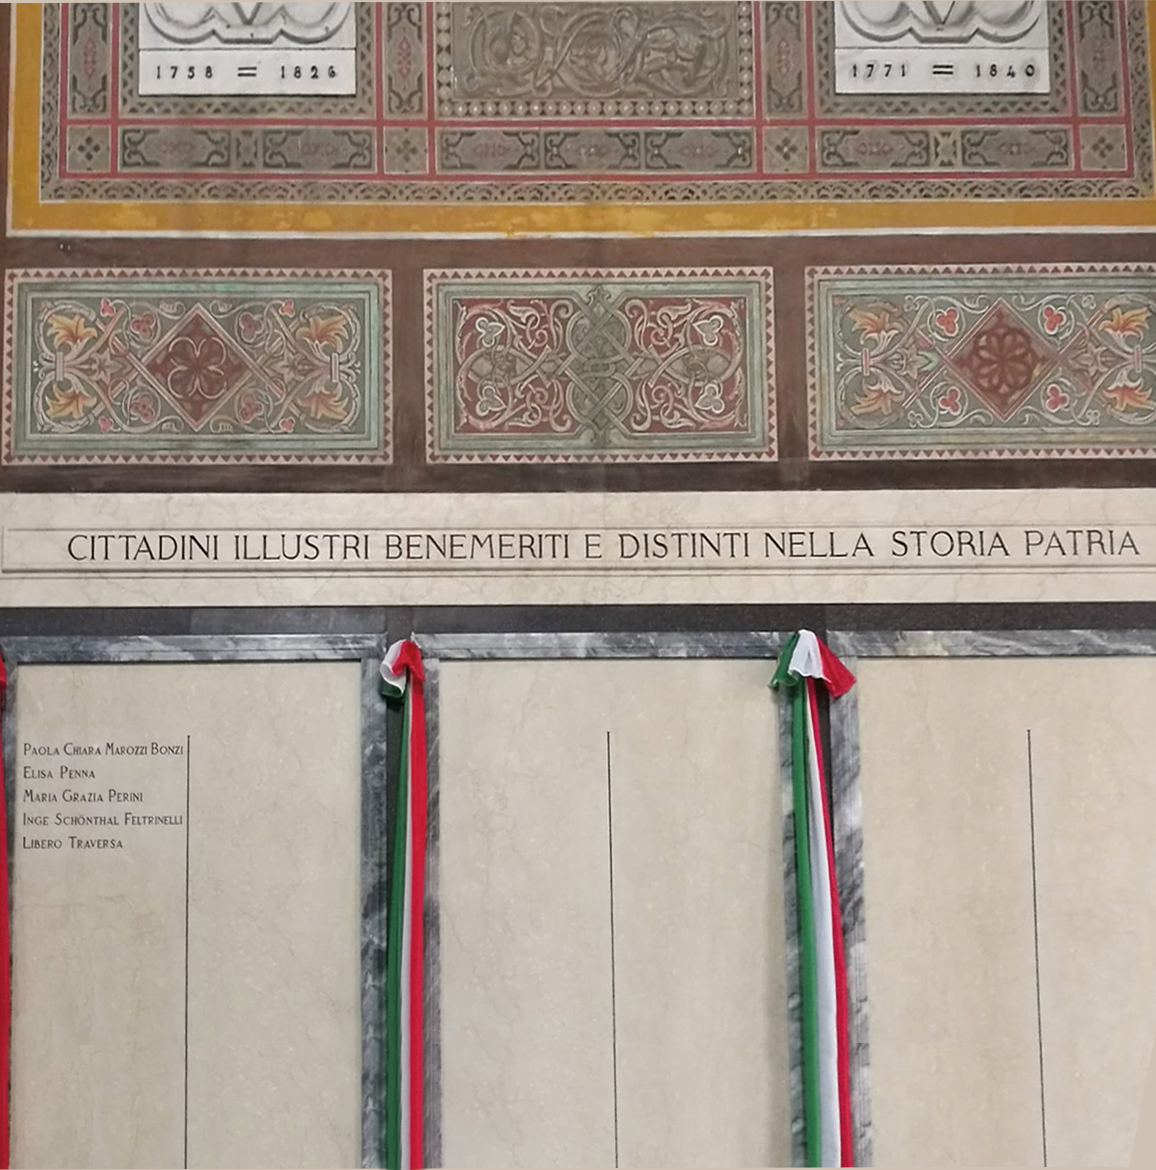 1758 = 1826
1771 = 1840
CITTADINI ILLUSTRI BENEMERITI E DISTINTI NELLA STORIA PATRIA
PAOLA CHIARA MAROZZI BONZI
ELISA PENNA
MARIA GRAZIA PERINI
INGE SCHÖNTHAL FELTRINELLI
LIBERO TRAVERSA